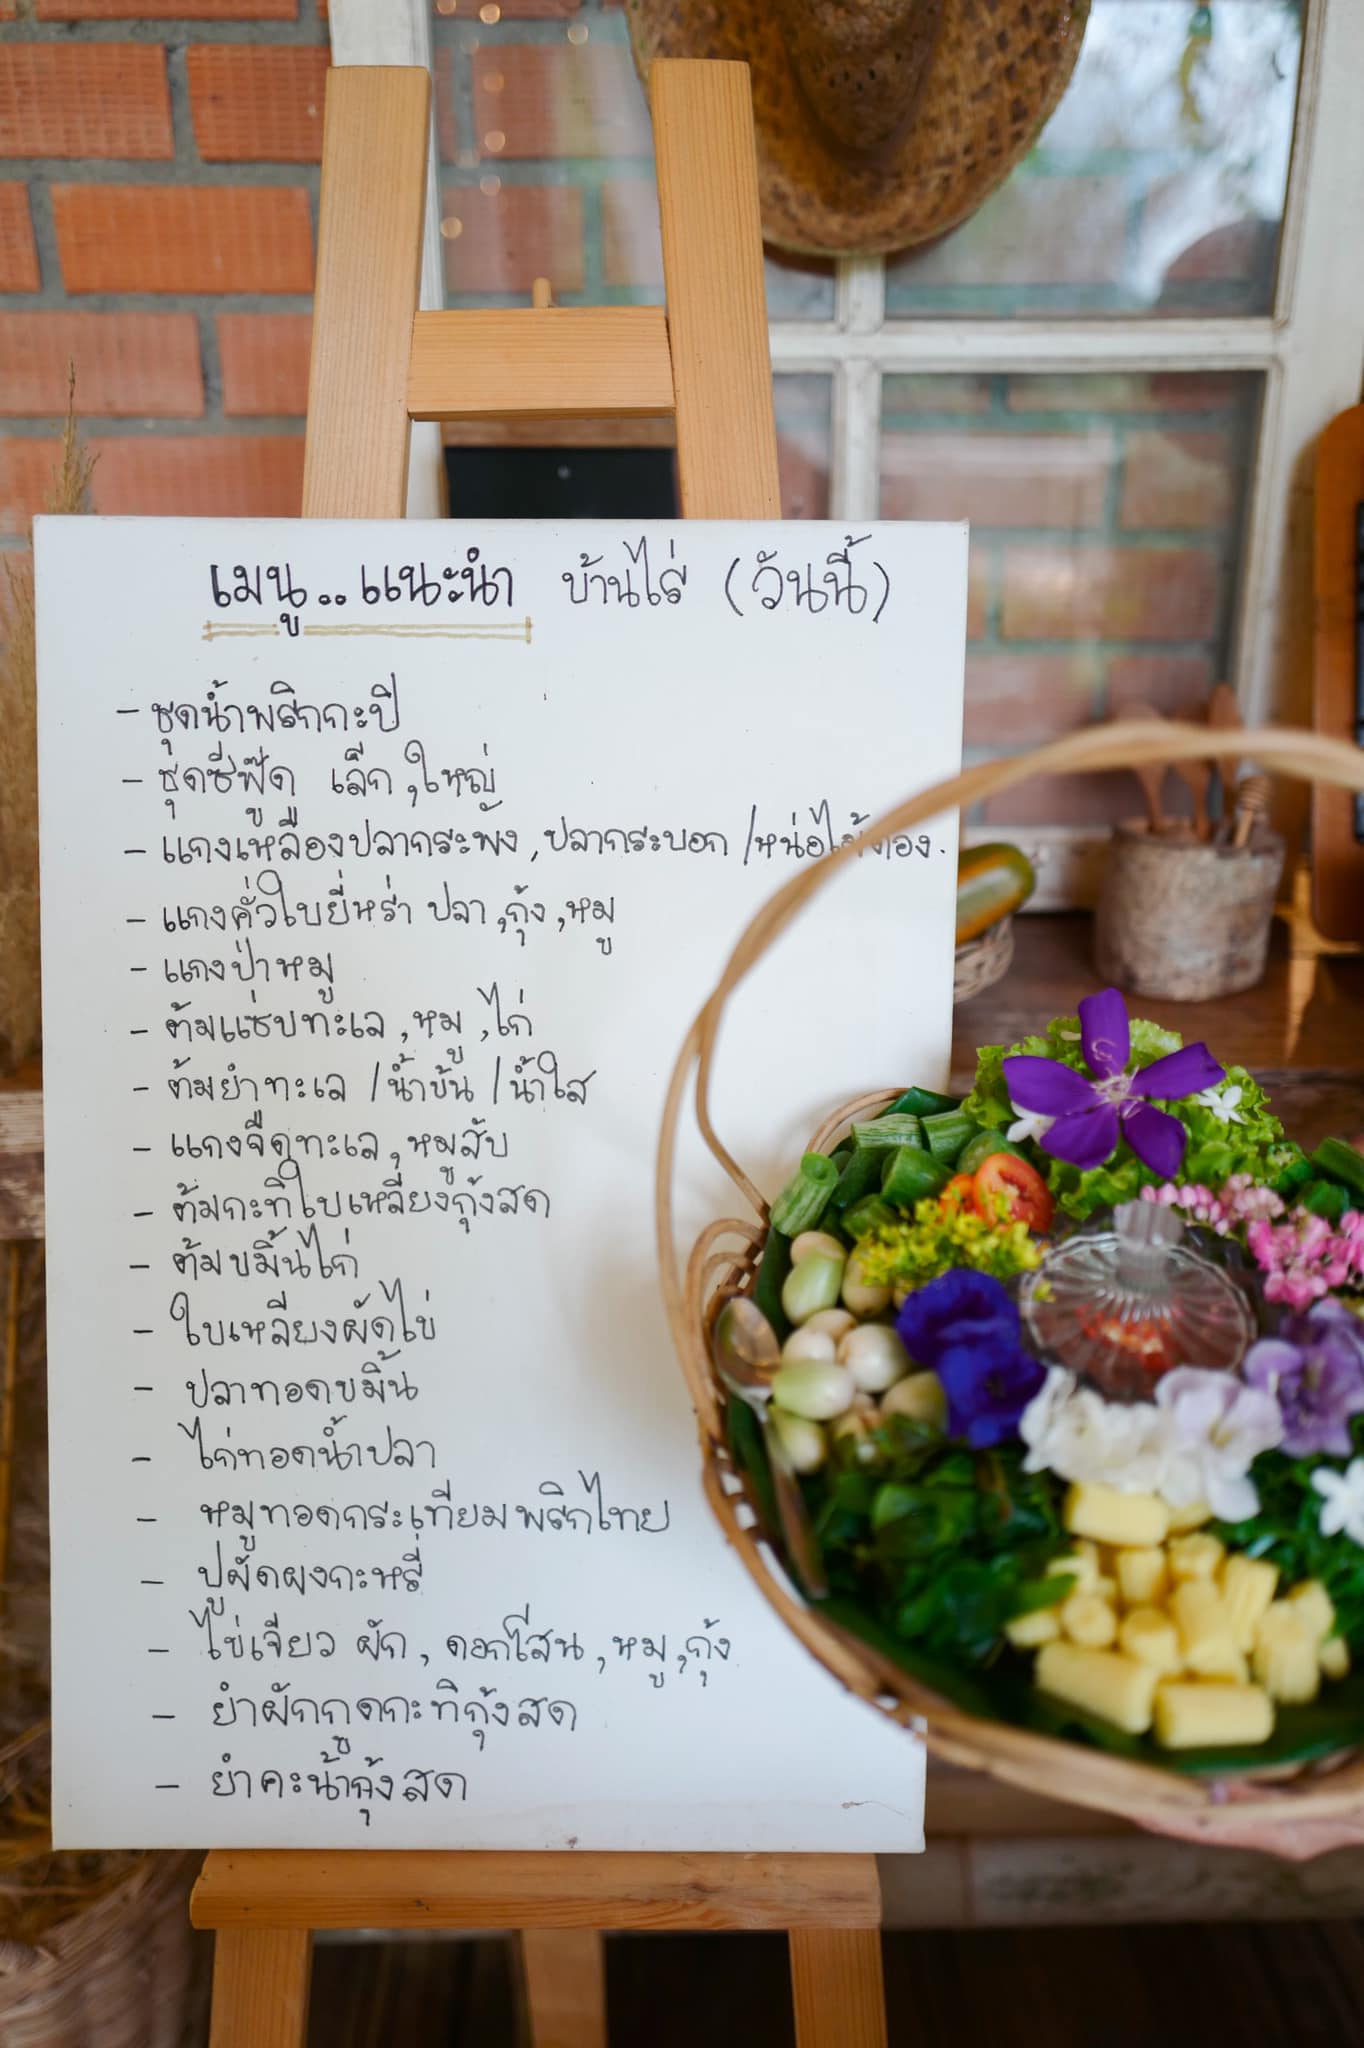 เมนู..แนะนำ บ้านไร่ (วันนี้)
- ชุดน้ำพริกกะปิ
- ชุดซีฟู๊ด เล็ก,ใหญ่
- แกงเหลืองปลากระพัง,ปลากระบอก/หน่อไม้ดอง.
- แกงคั่วใบยี่หร่า ปลา,กุ้ง,หมู
- แกงป่าหมู
- ต้มแซ่บทะเล,หมู,ไก่
- ต้มยำทะเล/น้ำข้น/น้ำใส
- แกงจืดทะเล,หมูสับ
- ต้มกะทิใบเหลียงกุ้งสด
- ต้มขมิ้นไก่
- ใบเหลียงผัดไข่
- ปลาทอดขมิ้น
- ไก่ทอดน้ำปลา
- หมูทอดกระเทียมพริกไทย
- ปูผัดผงกะหรี่
- ไข่เจียว ผัก, ดอกโสน,หมู,กุ้ง
- ยำผักกูดกะทิกุ้งสด
- ยำคะน้ากุ้งสด